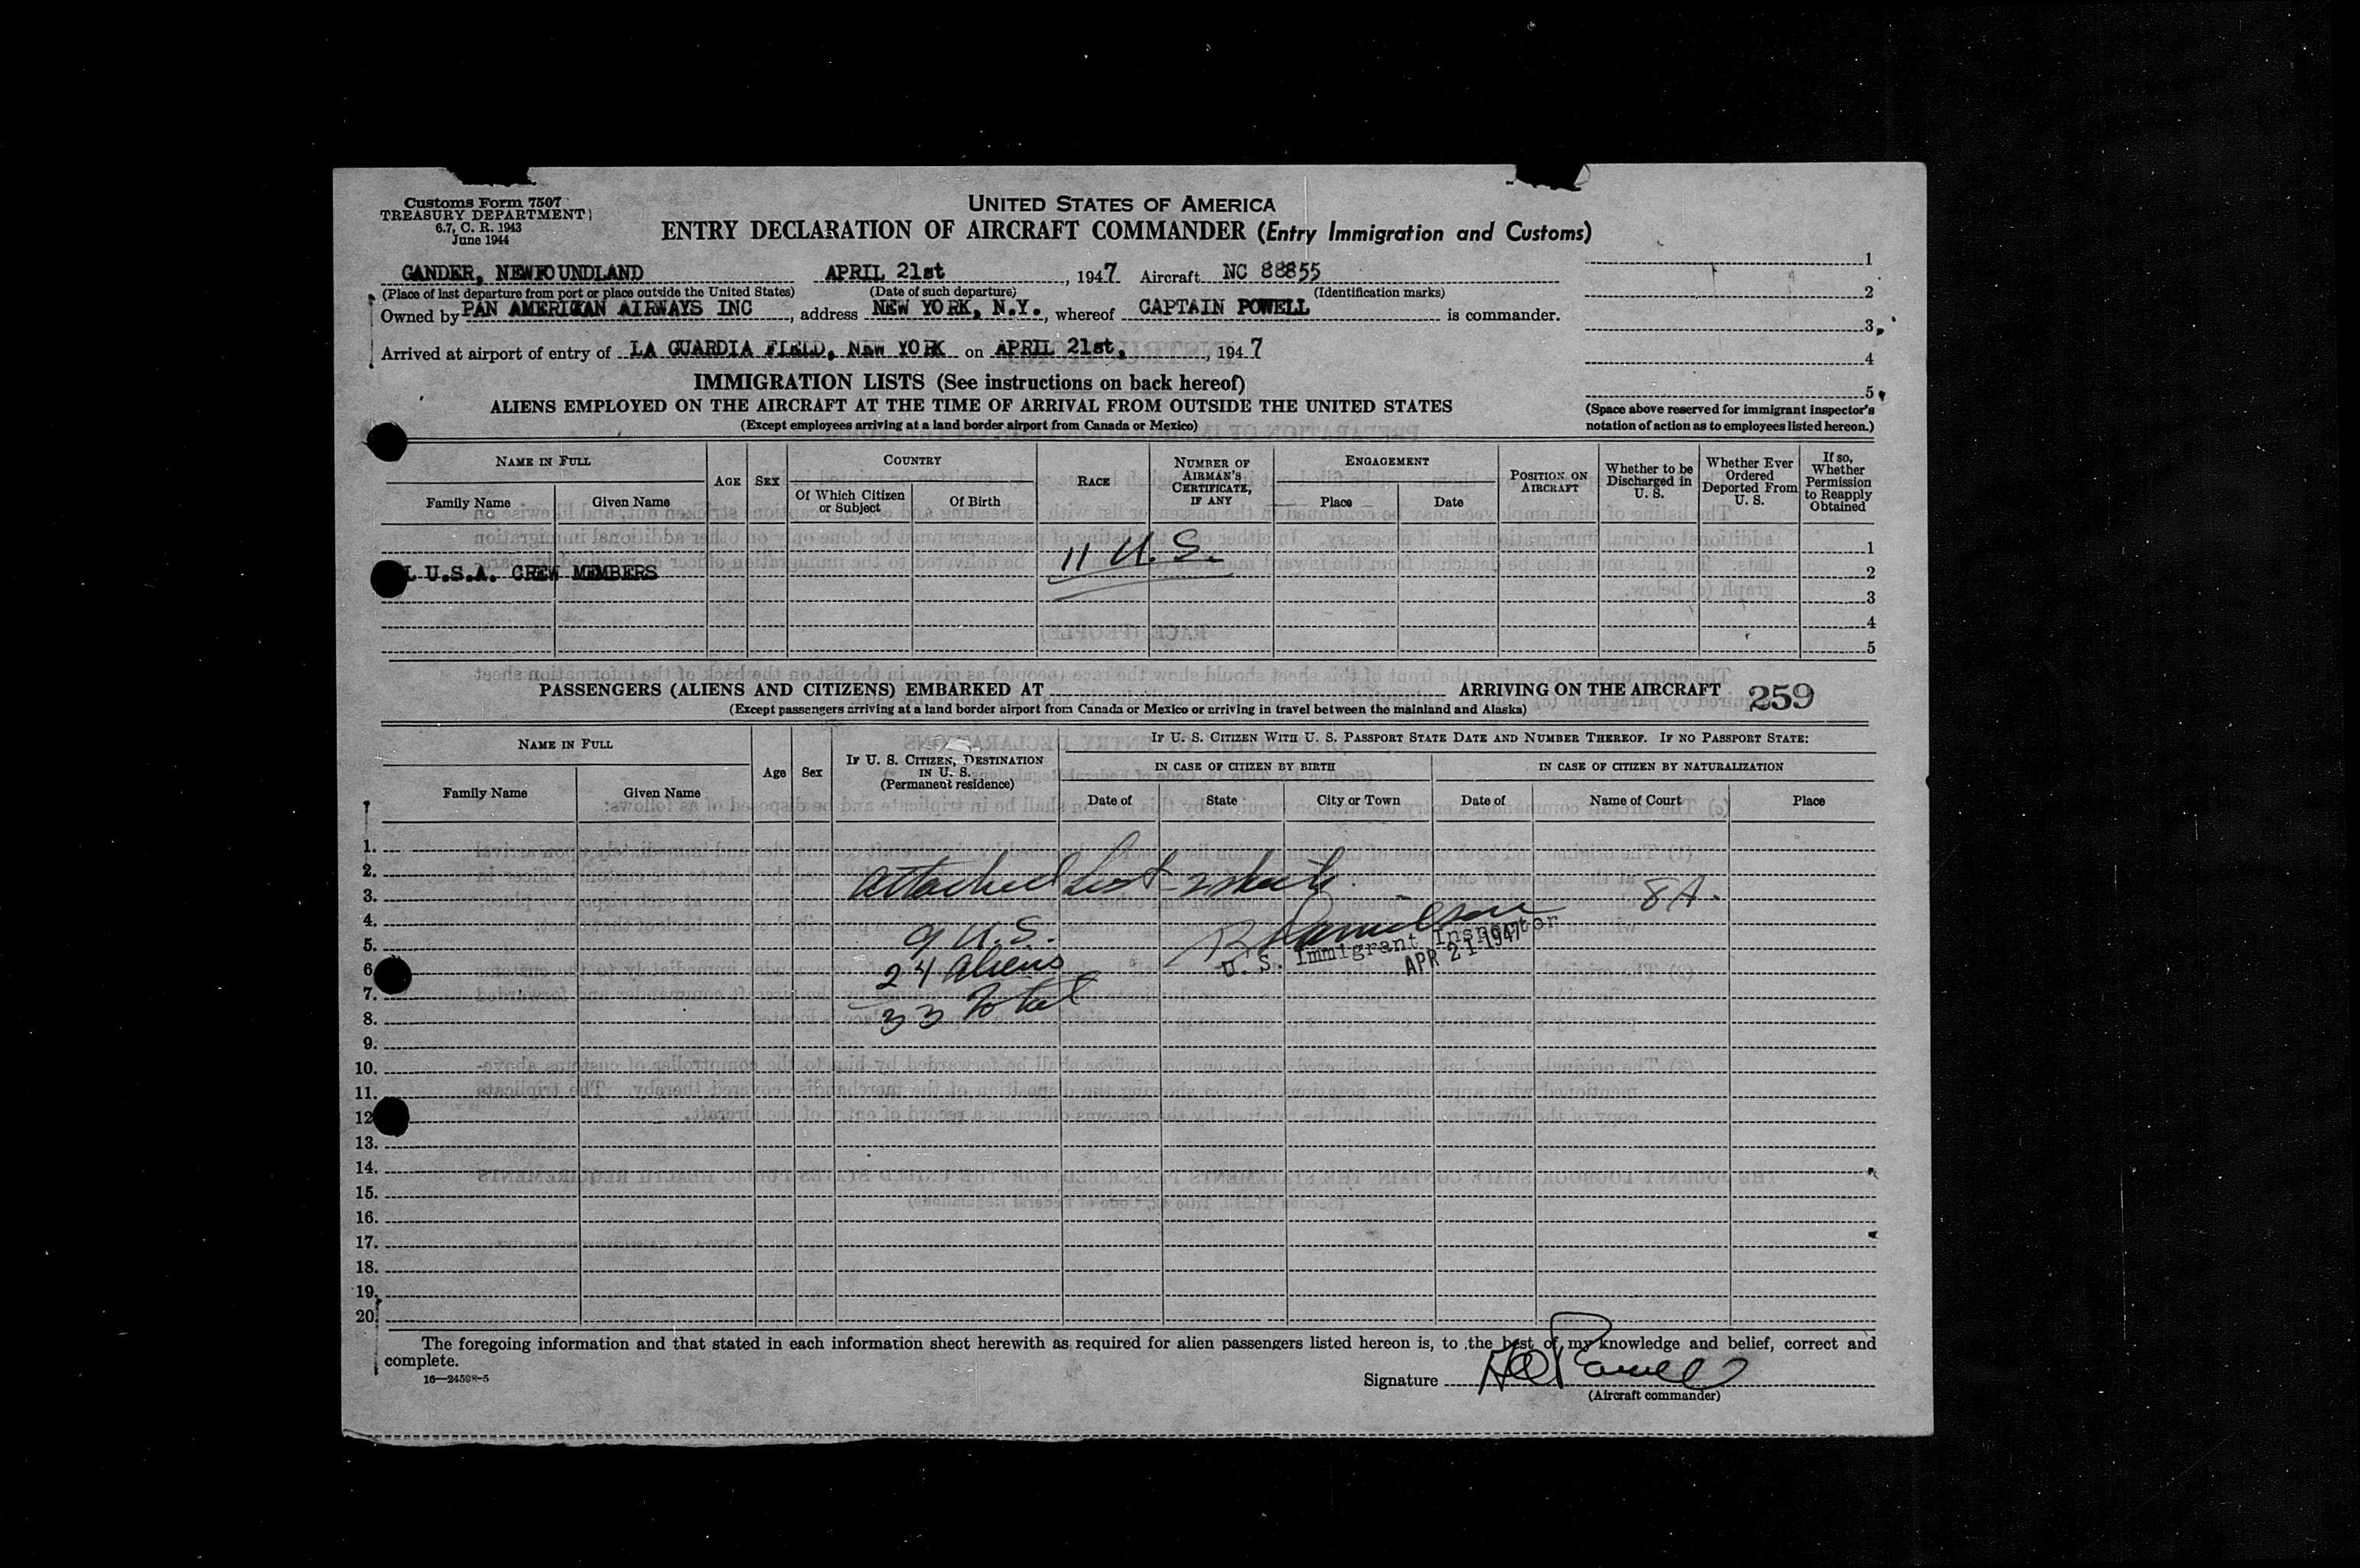 Customs Form 7507
TREASURY DEPARTMENT
6.7, C. R. 1943
June 1944
UNITED STATES OF AMERICA
ENTRY DECLARATION OF AIRCRAFT COMMANDER (Entry Immigration and Customs)
GANDER, NEWFOUNDLAND APRIL 21st, 1947 Aircraft NC 88855
(Place of last departure from port or place outside the United States) (Date of such departure) (Identification marks)
Owned by PAN AMERICAN AIRWAYS INC, address NEW YORK, N.Y., whereof CAPTAIN POWELL is commander.
Arrived at airport of entry of LA GUARDIA FIELD, NEW YORK on APRIL 21st, 1947
1
2
3
4
5
(Space above reserved for immigrant inspector's
notation of action as to employees listed hereon.)
IMMIGRATION LISTS (See instructions on back hereof)
ALIENS EMPLOYED ON THE AIRCRAFT AT THE TIME OF ARRIVAL FROM OUTSIDE THE UNITED STATES
(Except employees arriving at a land border airport from Canada or Mexico)
NAME IN FULL
Family Name Given Name
AGE
SEX
COUNTRY
Of Which Citizen or Subject
Of Birth
RACE
NUMBER OF AIRMAN'S CERTIFICATE, IF ANY
ENGAGEMENT
Place Date
POSITION ON AIRCRAFT
Whether to be Discharged in U. S.
Whether Ever Ordered Deported From U. S.
If so, Whether Permission to Reapply Obtained
11 U.S.
1
L U.S.A. CREW MEMBERS 2
3
4
5
PASSENGERS (ALIENS AND CITIZENS) EMBARKED AT ARRIVING ON THE AIRCRAFT 259
(Except passengers arriving at a land border airport from Canada or Mexico or arriving in travel between the mainland and Alaska)
NAME IN FULL
Family Name Given Name
Age
Sex
IF U. S. CITIZEN, DESTINATION IN U. S.
(Permanent residence)
IF U. S. CITIZEN WITH U. S. PASSPORT STATE DATE AND NUMBER THEREOF. IF NO PASSPORT STATE:
IN CASE OF CITIZEN BY BIRTH
Date of State City or Town
IN CASE OF CITIZEN BY NATURALIZATION
Date of Name of Court Place
1.
2.
attached list - 2 sheets
3. 8A.
4.
9 U.S.
5.
U. S. Immigrant Inspector
APR 21 1947
24 aliens
6
7.
33 Total
8.
9.
10.
11.
12
13.
14.
15.
16.
17.
18.
19.
20.
The foregoing information and that stated in each information sheet herewith as required for alien passengers listed hereon is, to the best of my knowledge and belief, correct and
complete.
16—24598-5
Signature
(Aircraft commander)